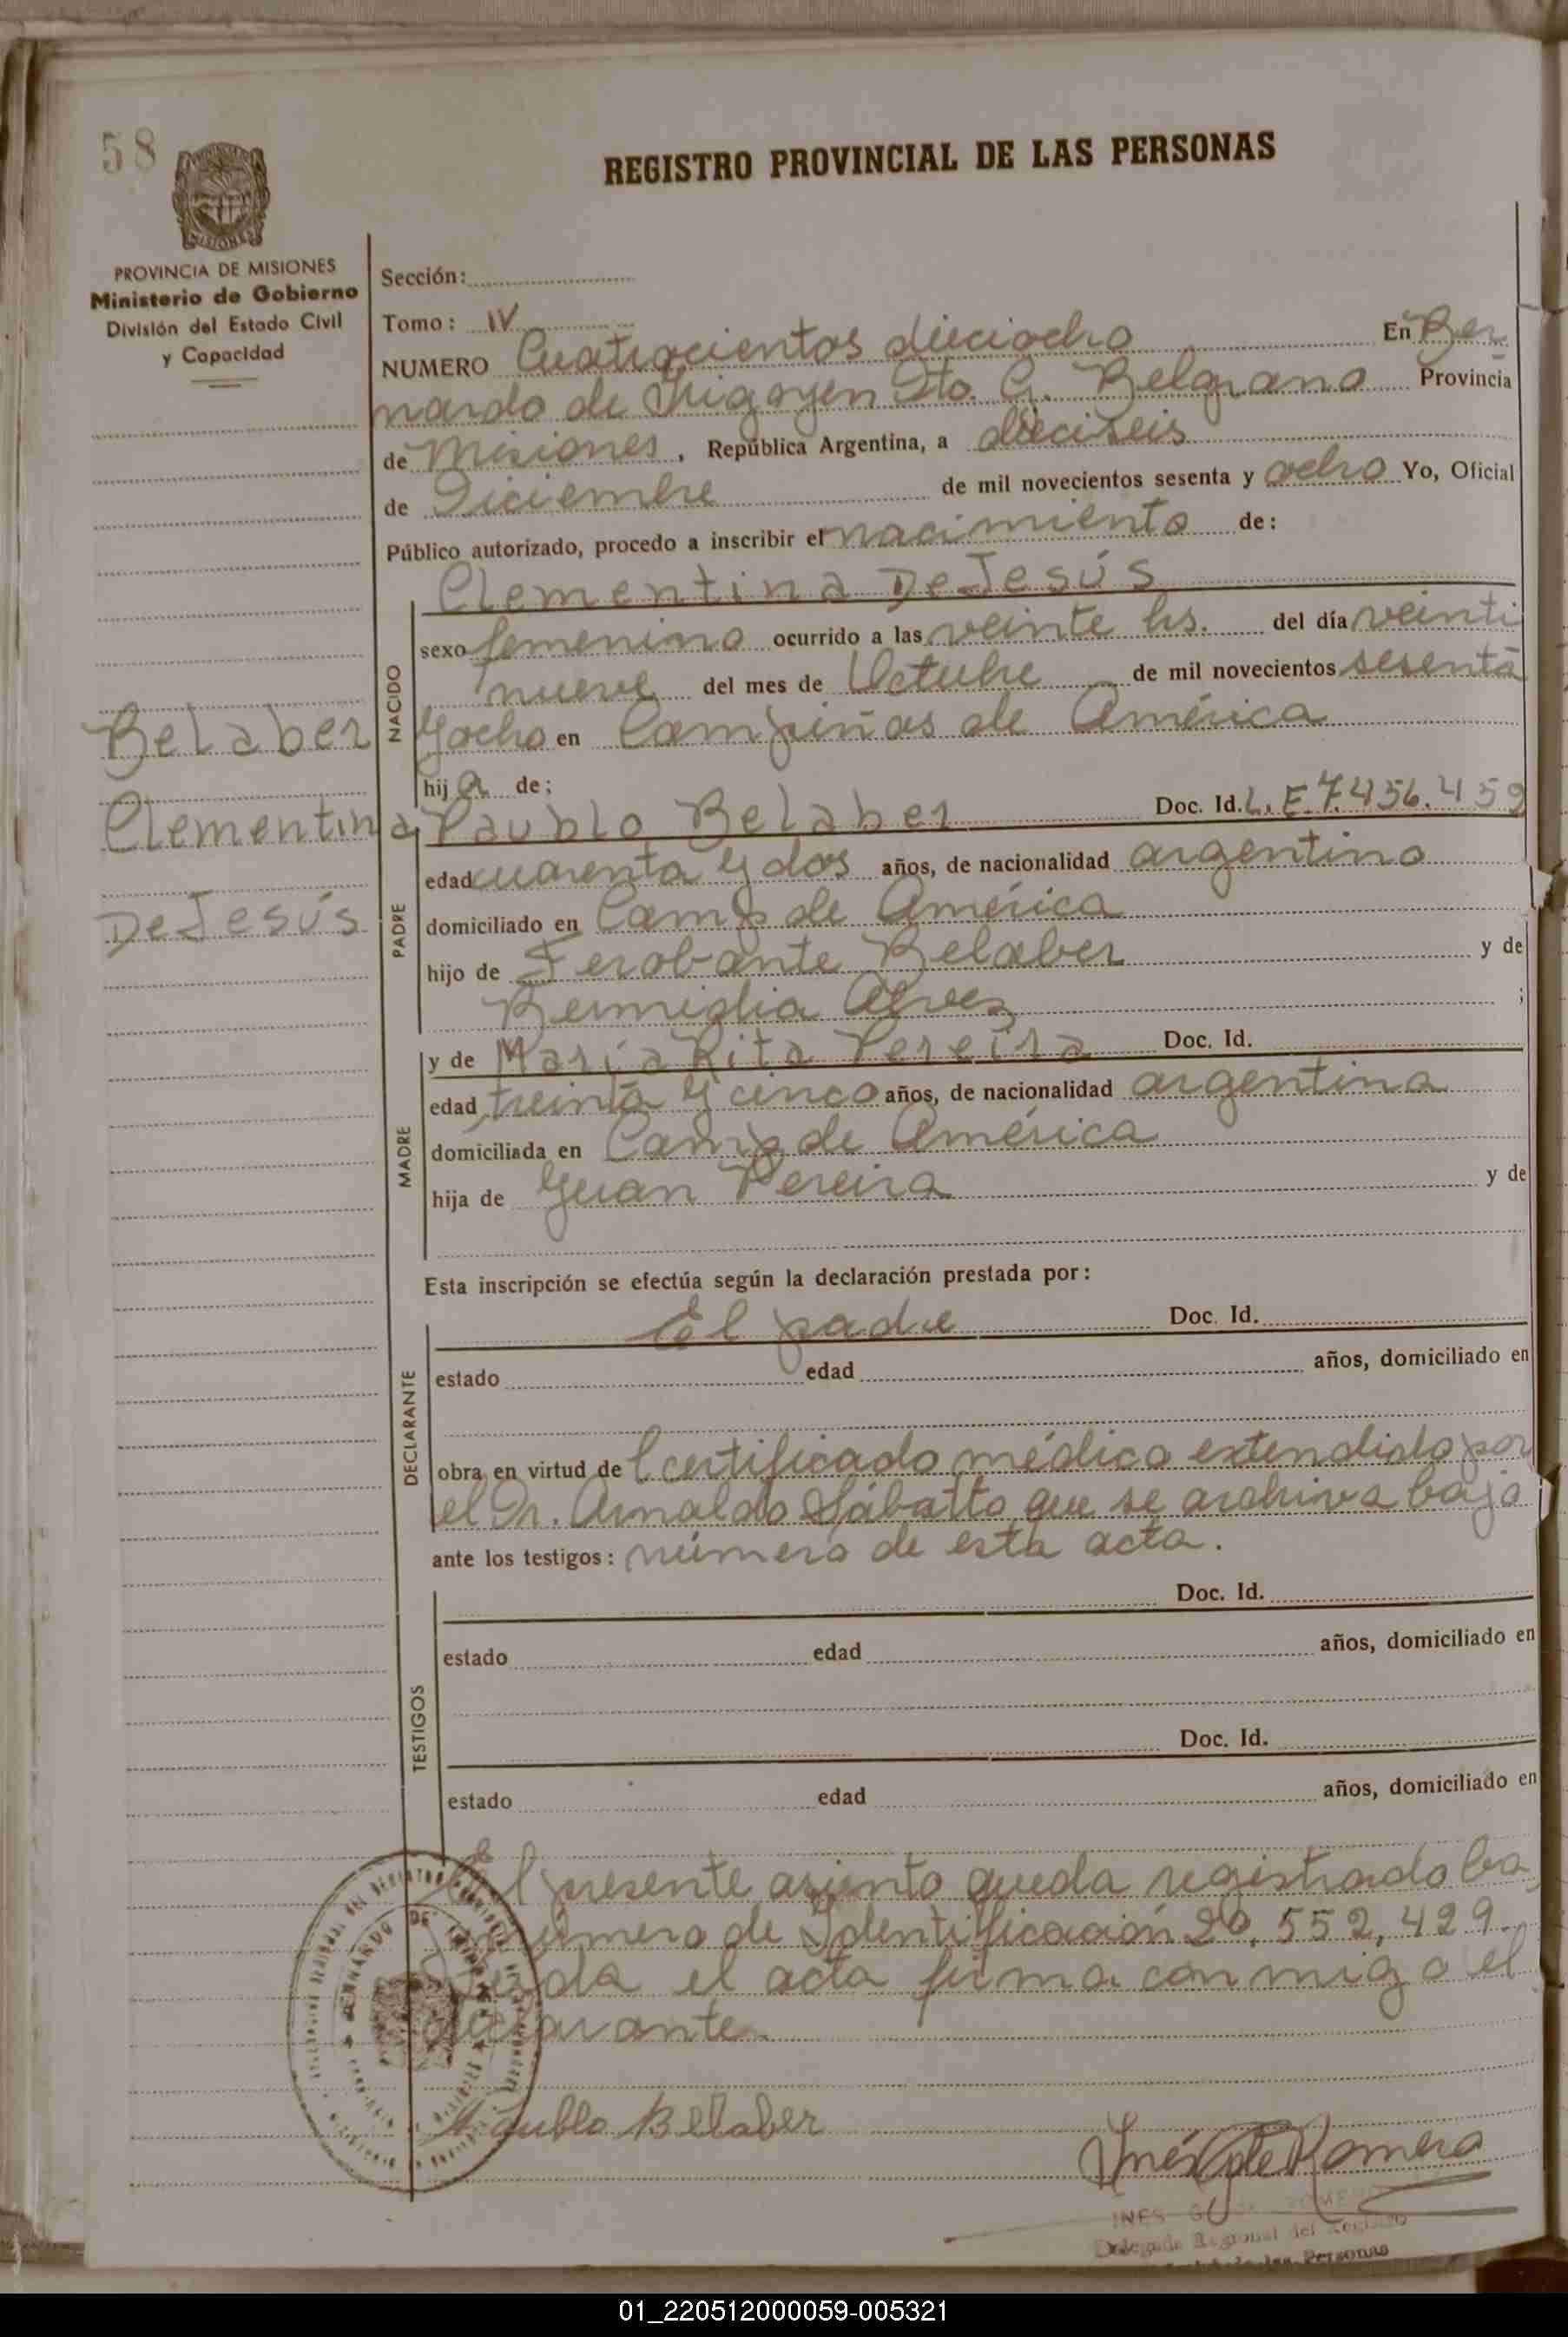 58
REGISTRO PROVINCIAL DE LAS PERSONAS
MISIONES
PROVINCIA DE MISIONES
Ministerio de Gobierno
División del Estado Civil
y Capacidad
Sección:
Tomo: IV
NUMERO Cuatrocientos dieciocho En Ber
nardo de Irigoyen Dto. G. Belgrano Provincia
de Misiones, República Argentina, a dieciseis
de Diciembre de mil novecientos sesenta y ocho Yo, Oficial
Público autorizado, procedo a inscribir el nacimiento de:
Clementina DeJesús
NACIDO
sexo femenino ocurrido a las veinte hs. del día veinti
nueve del mes de Octubre de mil novecientos sesenta
y ocho en Campiñas de América
hija de;
Belaber
Clementina
DeJesús
PADRE
Paublo Belaber Doc. Id. L.E.7.456.459
edad cuarenta y dos años, de nacionalidad argentino
domiciliado en Camp de América
hijo de Ferobante Belaber y de
Bermidia Alves ;
MADRE
y de María Rita Pereira Doc. Id.
edad treinta y cinco años, de nacionalidad argentina
domiciliada en Camp de América
hija de Juan Pereira y de
Esta inscripción se efectúa según la declaración prestada por:
DECLARANTE
El padre Doc. Id.
estado edad años, domiciliado en
obra en virtud de Certificado médico extendido por
el Dr. Arnaldo Sábatto que se archiva bajo
ante los testigos: número de esta acta.
TESTIGOS
Doc. Id.
estado edad años, domiciliado en
Doc. Id.
estado edad años, domiciliado en
El presente asiento queda registrado ba
número de Identificación 20.552,429.
el acta firma conmigo el
declarante.
Paublo Belaber
Inés G de Romero
INES
Delegada Regional del Registro
de las Personas
01_220512000059-005321